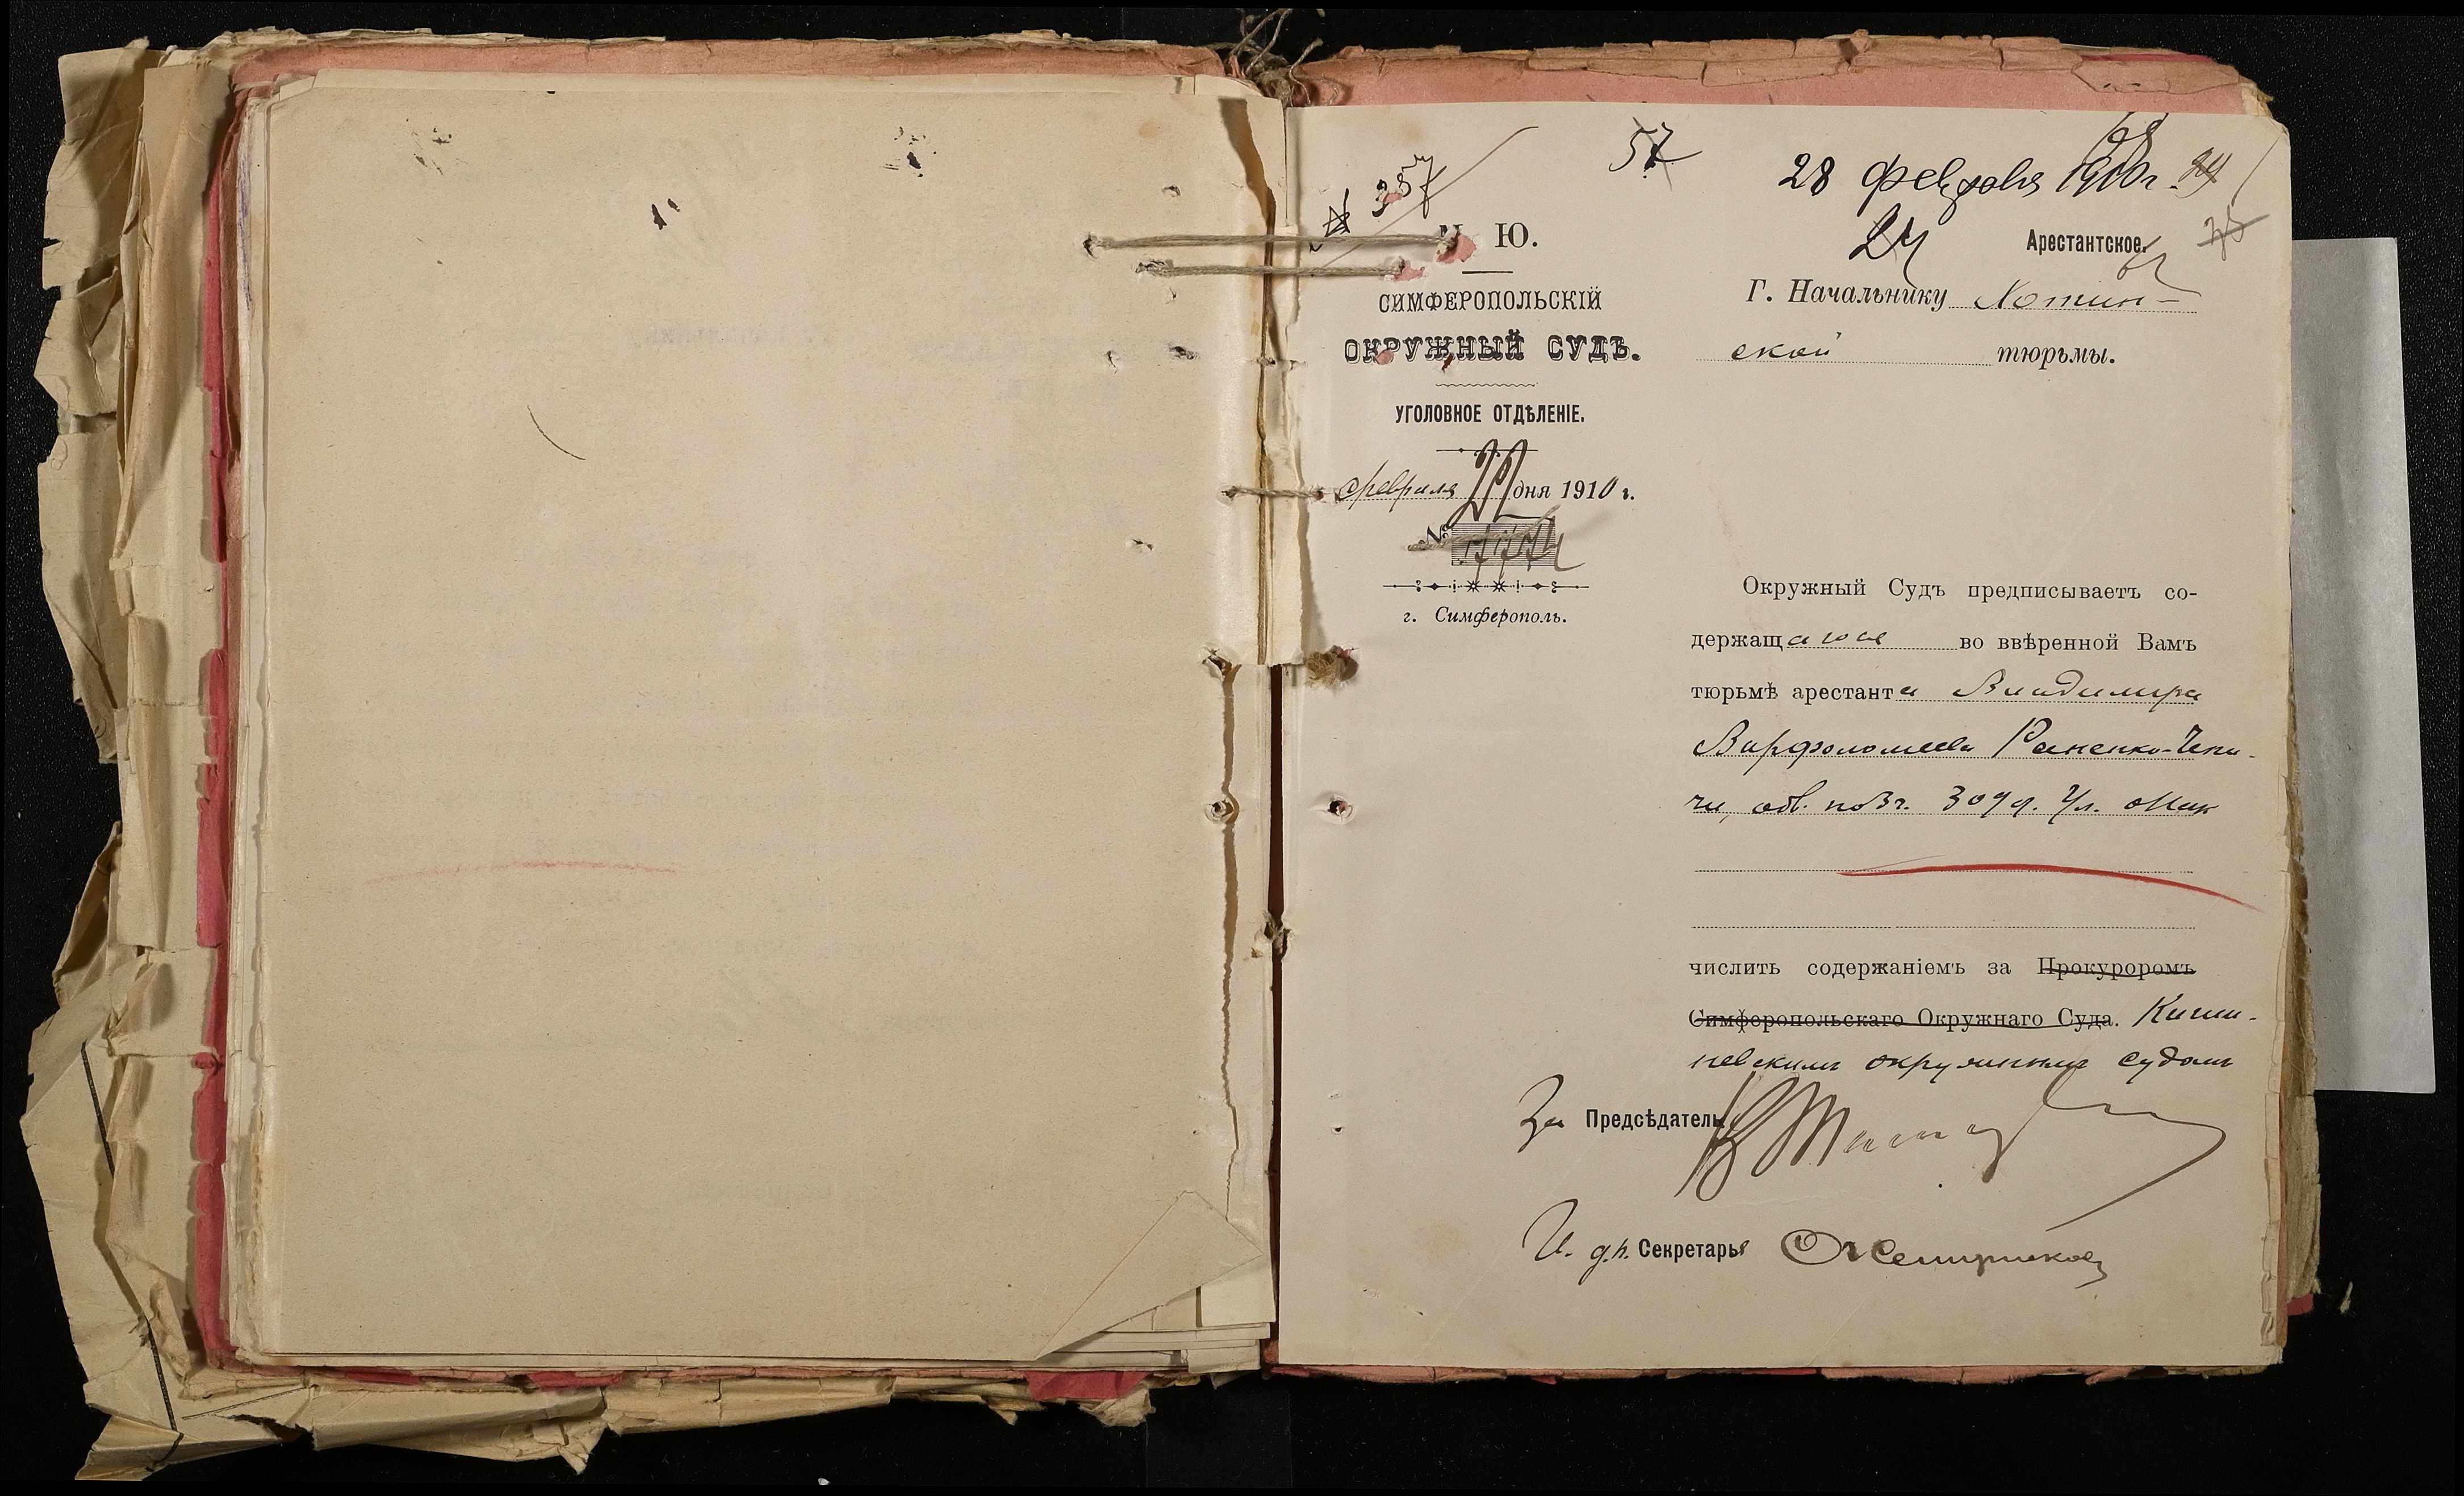 57
28 февраля 1910 г.
№ 357
24
Арестантское.
М. Ю.
СИМФЕРОПОЛЬСКІЙ
ОКРУЖНЫЙ СУДЪ.
УГОЛОВНОЕ ОТДѢЛЕНІЕ.
февраля 22 дня 1910 г.
№
г. Симферополь.
Г. Начальнику Хотин-
ской тюрьмы.
Окружный Судъ предписываетъ со-
держащагося во ввѣренной Вамъ
тюрьмѣ арестанта Владимира
Варфоломеева Раненко-Чепи-
чи, обв. по 3 ч. 309 ст. Ул. о Нак
числить содержаніемъ за Прокуроромъ
Симферопольскаго Окружнаго Суда. Киши-
невскимъ окружнымъ судомъ
За Предсѣдателя
И. д. п. Секретаря